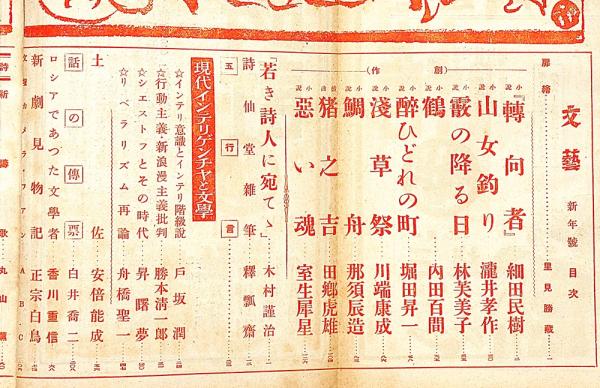 文藝 新年號 目次
扉繪 里見勝藏
(創作)
小説 『轉向者』 細田民樹
小説 山女釣り 瀧井孝作
小説 霰の降る日 林芙美子
小説 鶴 內田百間
小説 醉ひどれの町 堀田昇一
小説 淺草祭 川端康成
小説 鯛舟 那須辰造
戲曲 猪之吉 田鄕虎雄
小説 惡い魂 室生犀星
「若き詩人に宛てゝ」 木村謹治
詩仙堂雜筆 釋瓢齋
五行言
現代インテリゲンチャと文學
☆インテリ意識とインテリ階級説 戶坂潤
☆行動主義・新浪漫主義批判 勝本清一郎
☆シェストフとその時代 昇曙夢
☆リベラリズム再論 舟橋聖一
土佐 安倍能成
話の傳票 白井喬二
ロシアであつた文學者 香川重信
新劇見物記 正宗白鳥
A・B・C
詩 新 歌 丸山薰